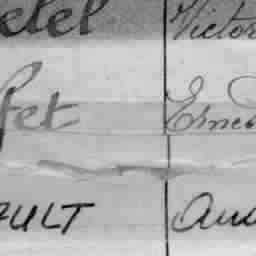 etel Victor
fet Ernes
AULT And